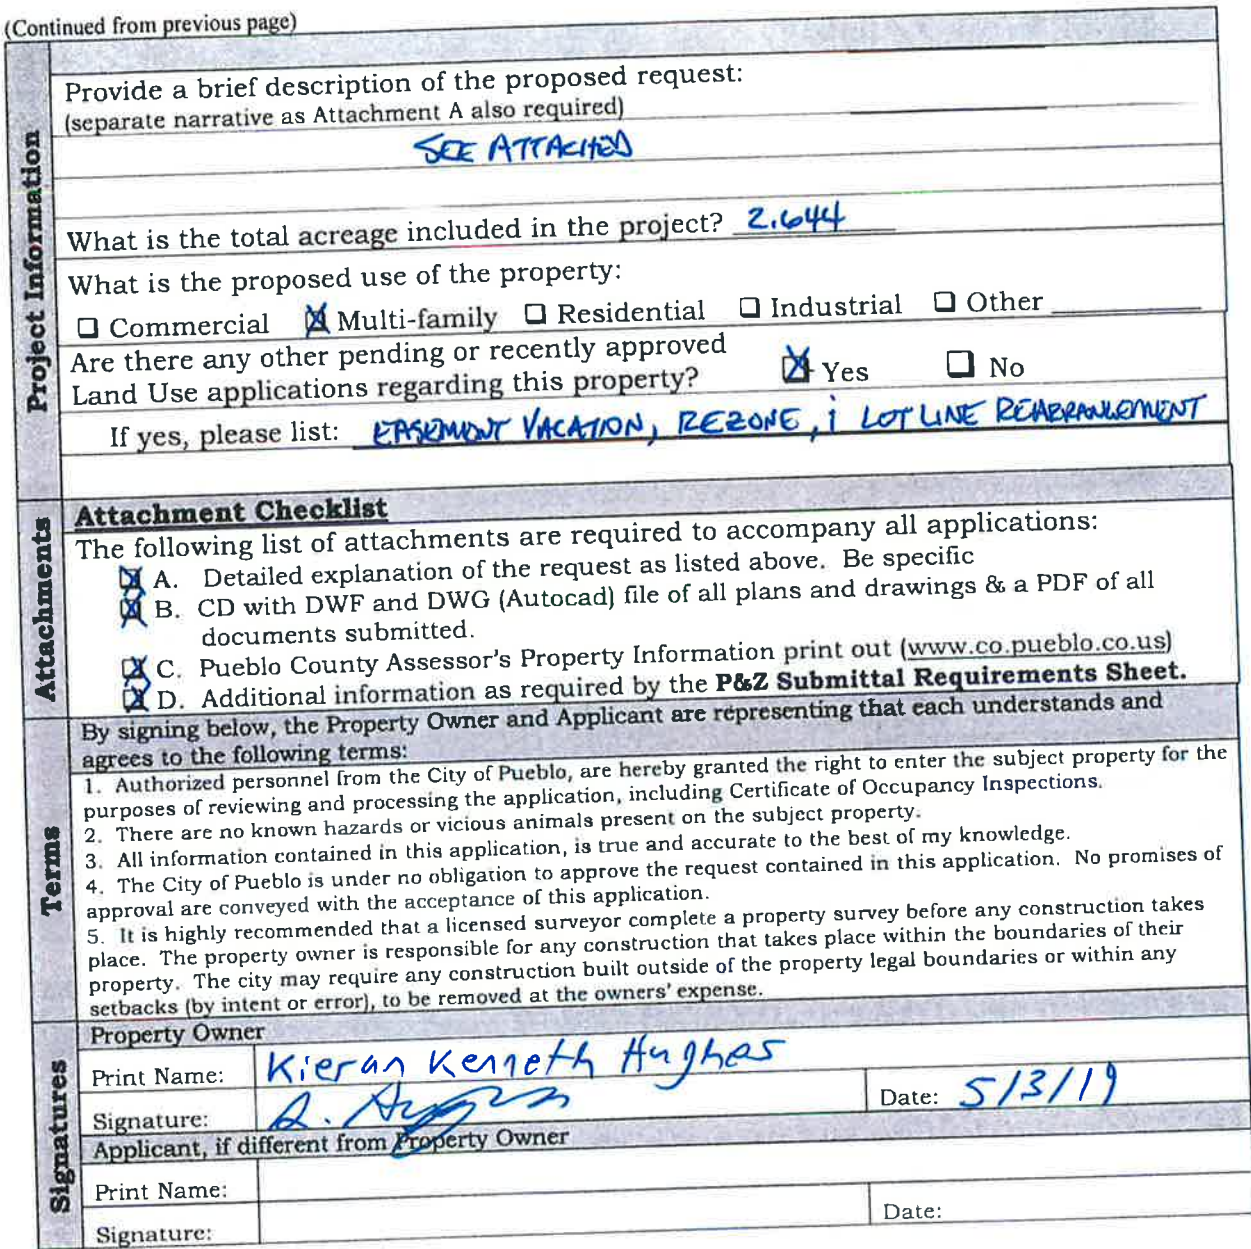 (Continued from previous page)
Project Information
Provide a brief description of the proposed request:
(separate narrative as Attachment A also required)
SEE ATTACHED
What is the total acreage included in the project? 2.644
What is the proposed use of the property:
☐ Commercial ☒ Multi-family ☐ Residential ☐ Industrial ☐ Other
Are there any other pending or recently approved
Land Use applications regarding this property? ☒ Yes ☐ No
If yes, please list: EASEMENT VACATION, REZONE, & LOT LINE REARRANGEMENT
Attachments
Attachment Checklist
The following list of attachments are required to accompany all applications:
☒ A. Detailed explanation of the request as listed above. Be specific
☒ B. CD with DWF and DWG (Autocad) file of all plans and drawings & a PDF of all
documents submitted.
☒ C. Pueblo County Assessor's Property Information print out (www.co.pueblo.co.us)
☒ D. Additional information as required by the P&Z Submittal Requirements Sheet.
Terms
By signing below, the Property Owner and Applicant are representing that each understands and
agrees to the following terms:
1. Authorized personnel from the City of Pueblo, are hereby granted the right to enter the subject property for the
purposes of reviewing and processing the application, including Certificate of Occupancy Inspections.
2. There are no known hazards or vicious animals present on the subject property.
3. All information contained in this application, is true and accurate to the best of my knowledge.
4. The City of Pueblo is under no obligation to approve the request contained in this application. No promises of
approval are conveyed with the acceptance of this application.
5. It is highly recommended that a licensed surveyor complete a property survey before any construction takes
place. The property owner is responsible for any construction that takes place within the boundaries of their
property. The city may require any construction built outside of the property legal boundaries or within any
setbacks (by intent or error), to be removed at the owners' expense.
Signatures
Property Owner
Print Name: Kieran Kenneth Hughes
Signature: Date: 5/3/19
Applicant, if different from Property Owner
Print Name:
Signature: Date: